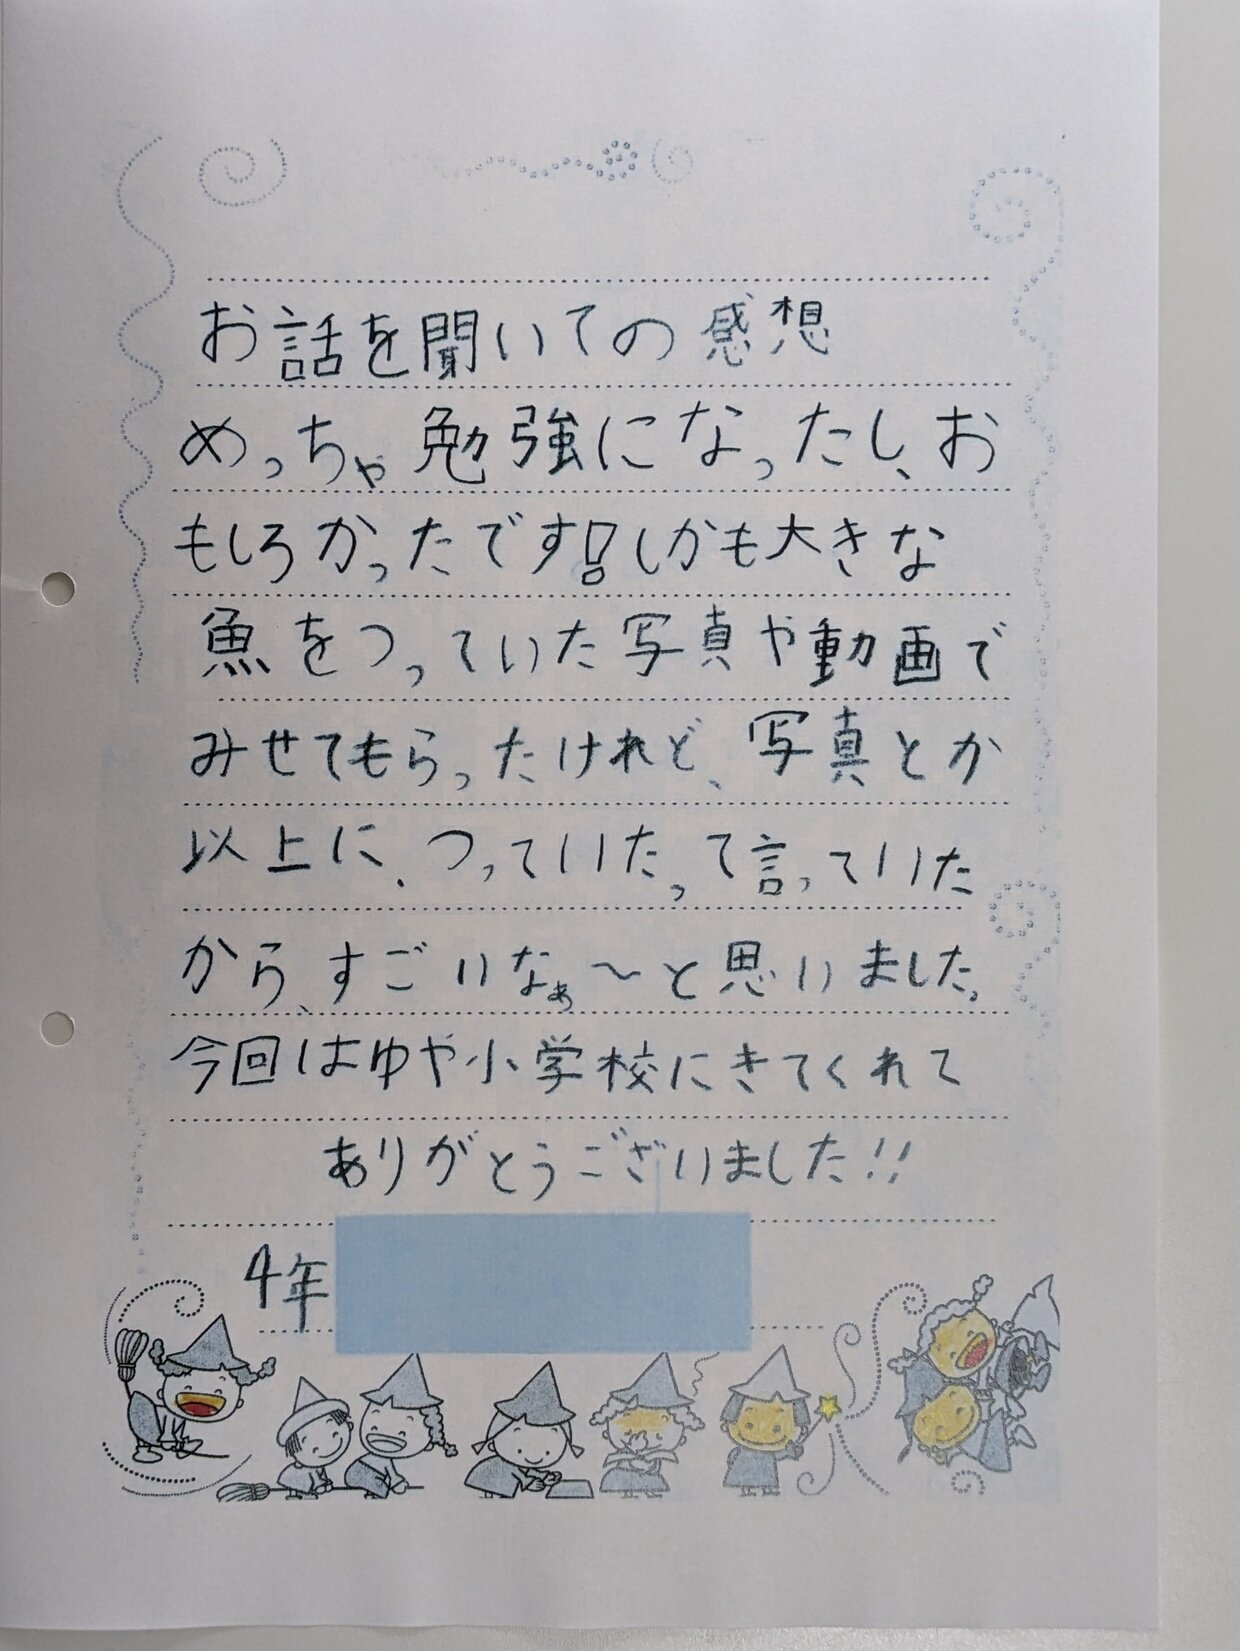 お話を聞いての感想
めっちゃ勉強になったし、お
もしろかったです!しかも大きな
魚をつっていた写真や動画で
みせてもらったけれど、写真とか
以上に、つっていたって言っていた
から、すごいなぁ〜と思いました。
今回はゆや小学校にきてくれて
ありがとうございました!!
4年